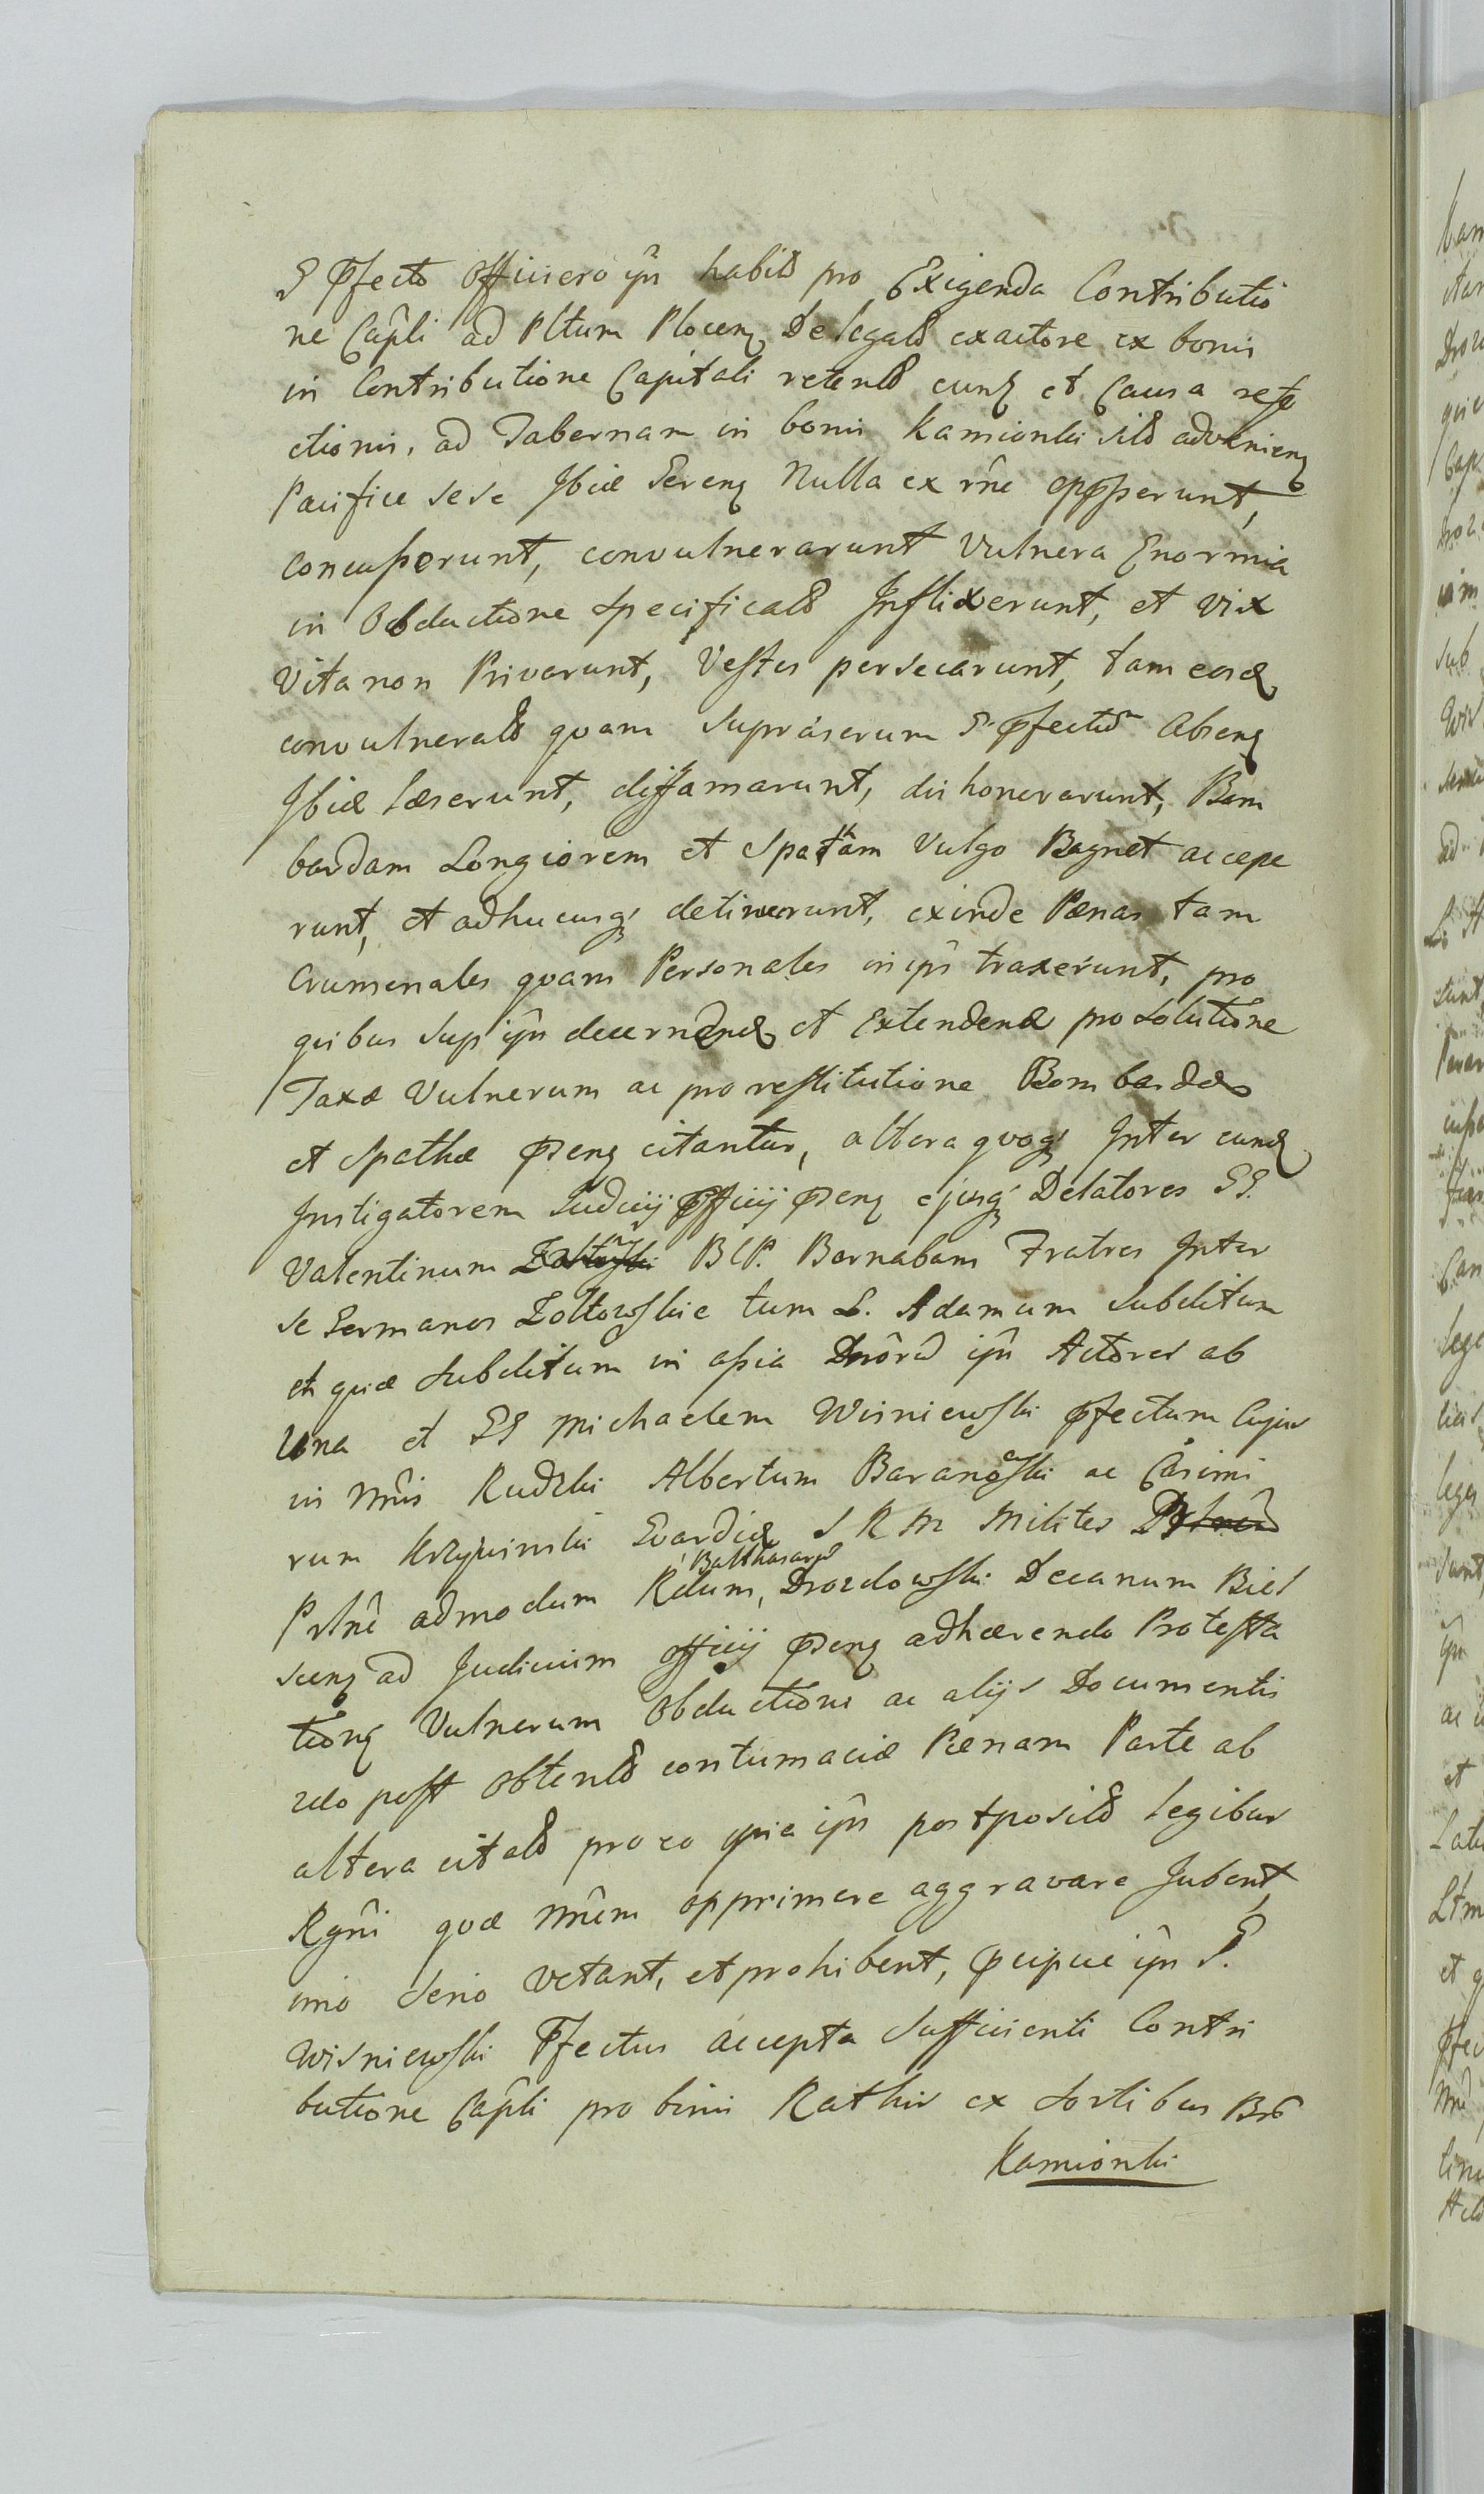 G Pfecto Officiero ijn habito pro Exigenda Contributio
ne Capli ad Pltum Plocen Delegato exactore ex bonis
in Contributione Capitali retento eund et Causa refe
ctionis, ad Tabernam in bonis Kamionki sito advenien
Pacifice sese Ibid Geren Nulla ex rne oppsserunt,
concusserunt, convulnerarunt Vulnera Enormia
in Obductione specificato Inflixerunt, et vix
Vita non Privarunt, Vestes persecarunt, tam eosd
convulnerato quam Supr Pfectu Absen
Ibid læserunt, diffamarunt, dishonorarunt, Bom
bardam Longiorem et Spatham Vulgo Bagnet accepe
runt, et adhucusq detinuerunt, exinde Pænas tam
Crumenales quam Personales in ijs traxerunt, pro
quibus sup ijn decernend et Extendend pro solutione
Taxæ Vulnerum ac pro restitutione Bombardæ
et Spathæ Psen citantur, altera quoq Inter eund
Instigatorem Judicij Officij Psen ejusq Delatores GG.
Valentinum BCP. Barnabam Fratres Inter
se Germanos Zołtowskie tum L. Adamum subditum
et quæ subditum in assia Dnoru ijn Actores ab
Una et GG Michaelem Wisniewski Pfectum Cujus
in Mris Rudzki Albertum Baranowski ac Casimi
rum Krzywinski Gvardiæ S R M Milites
Pstne admodum Rdum, Balthasaru Drozdowski Decanum Biel
scen ad Judicium officij Psen adhærendo Protesta
tion Vulnerum Obductione ac alijs Documentis
post obtento contumaciæ Pænam Parte ab
altera citato pro eo quia ijn postposito legibus
Rgni quæ opprimere aggravare Jubent,
imo serio vetant, et prohibent, Pcipue ijn G.
Wisniewski Pfectus accepta sufficienti Contri
butione Capli pro binis Rathis ex sortibus Bno
Kamionki